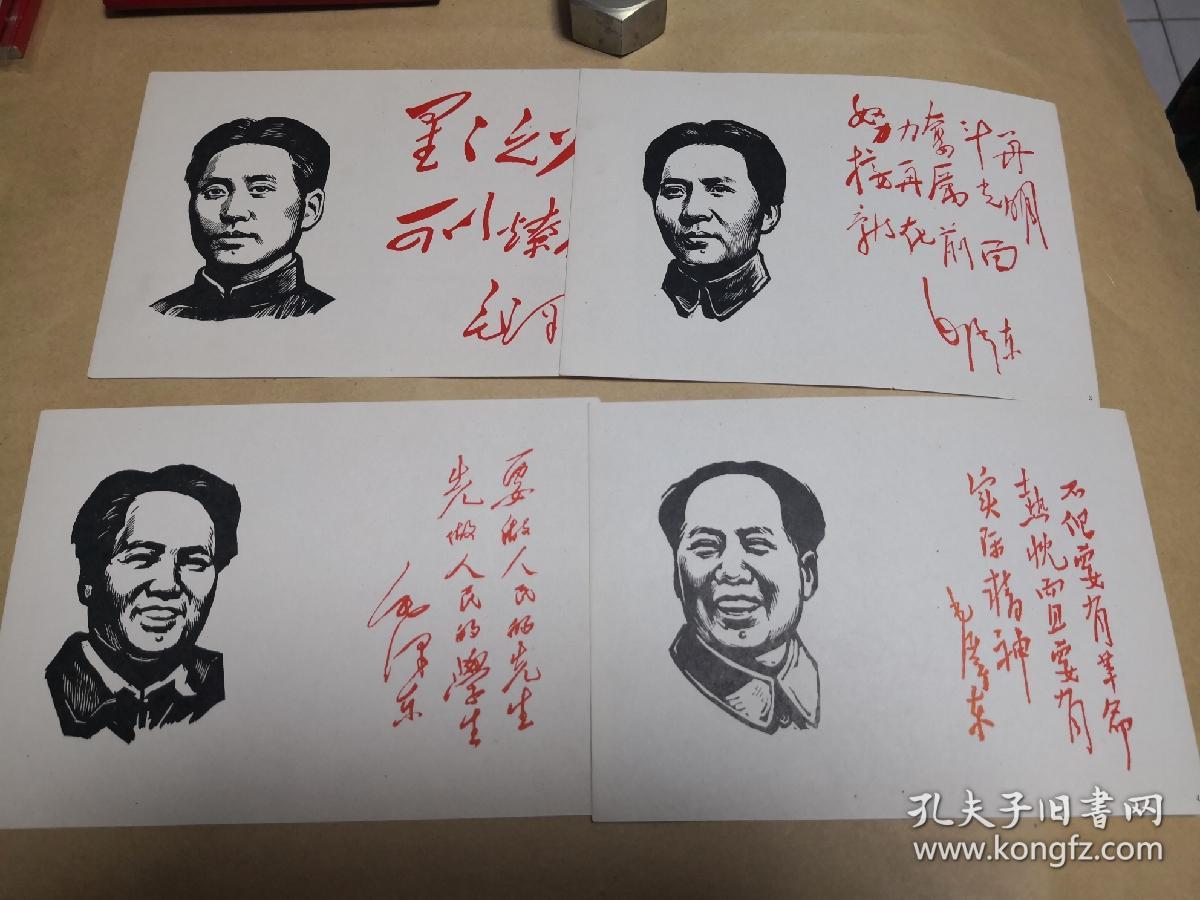 星々之火
可以燎
毛泽
努力奋斗再
接再厉光明
就在前面
毛泽东
要做人民的先生
先做人民的學生
毛泽东
不但要有革命
熱忱而且要有
实际精神
毛泽东
孔夫子旧书网
www.kongfz.com